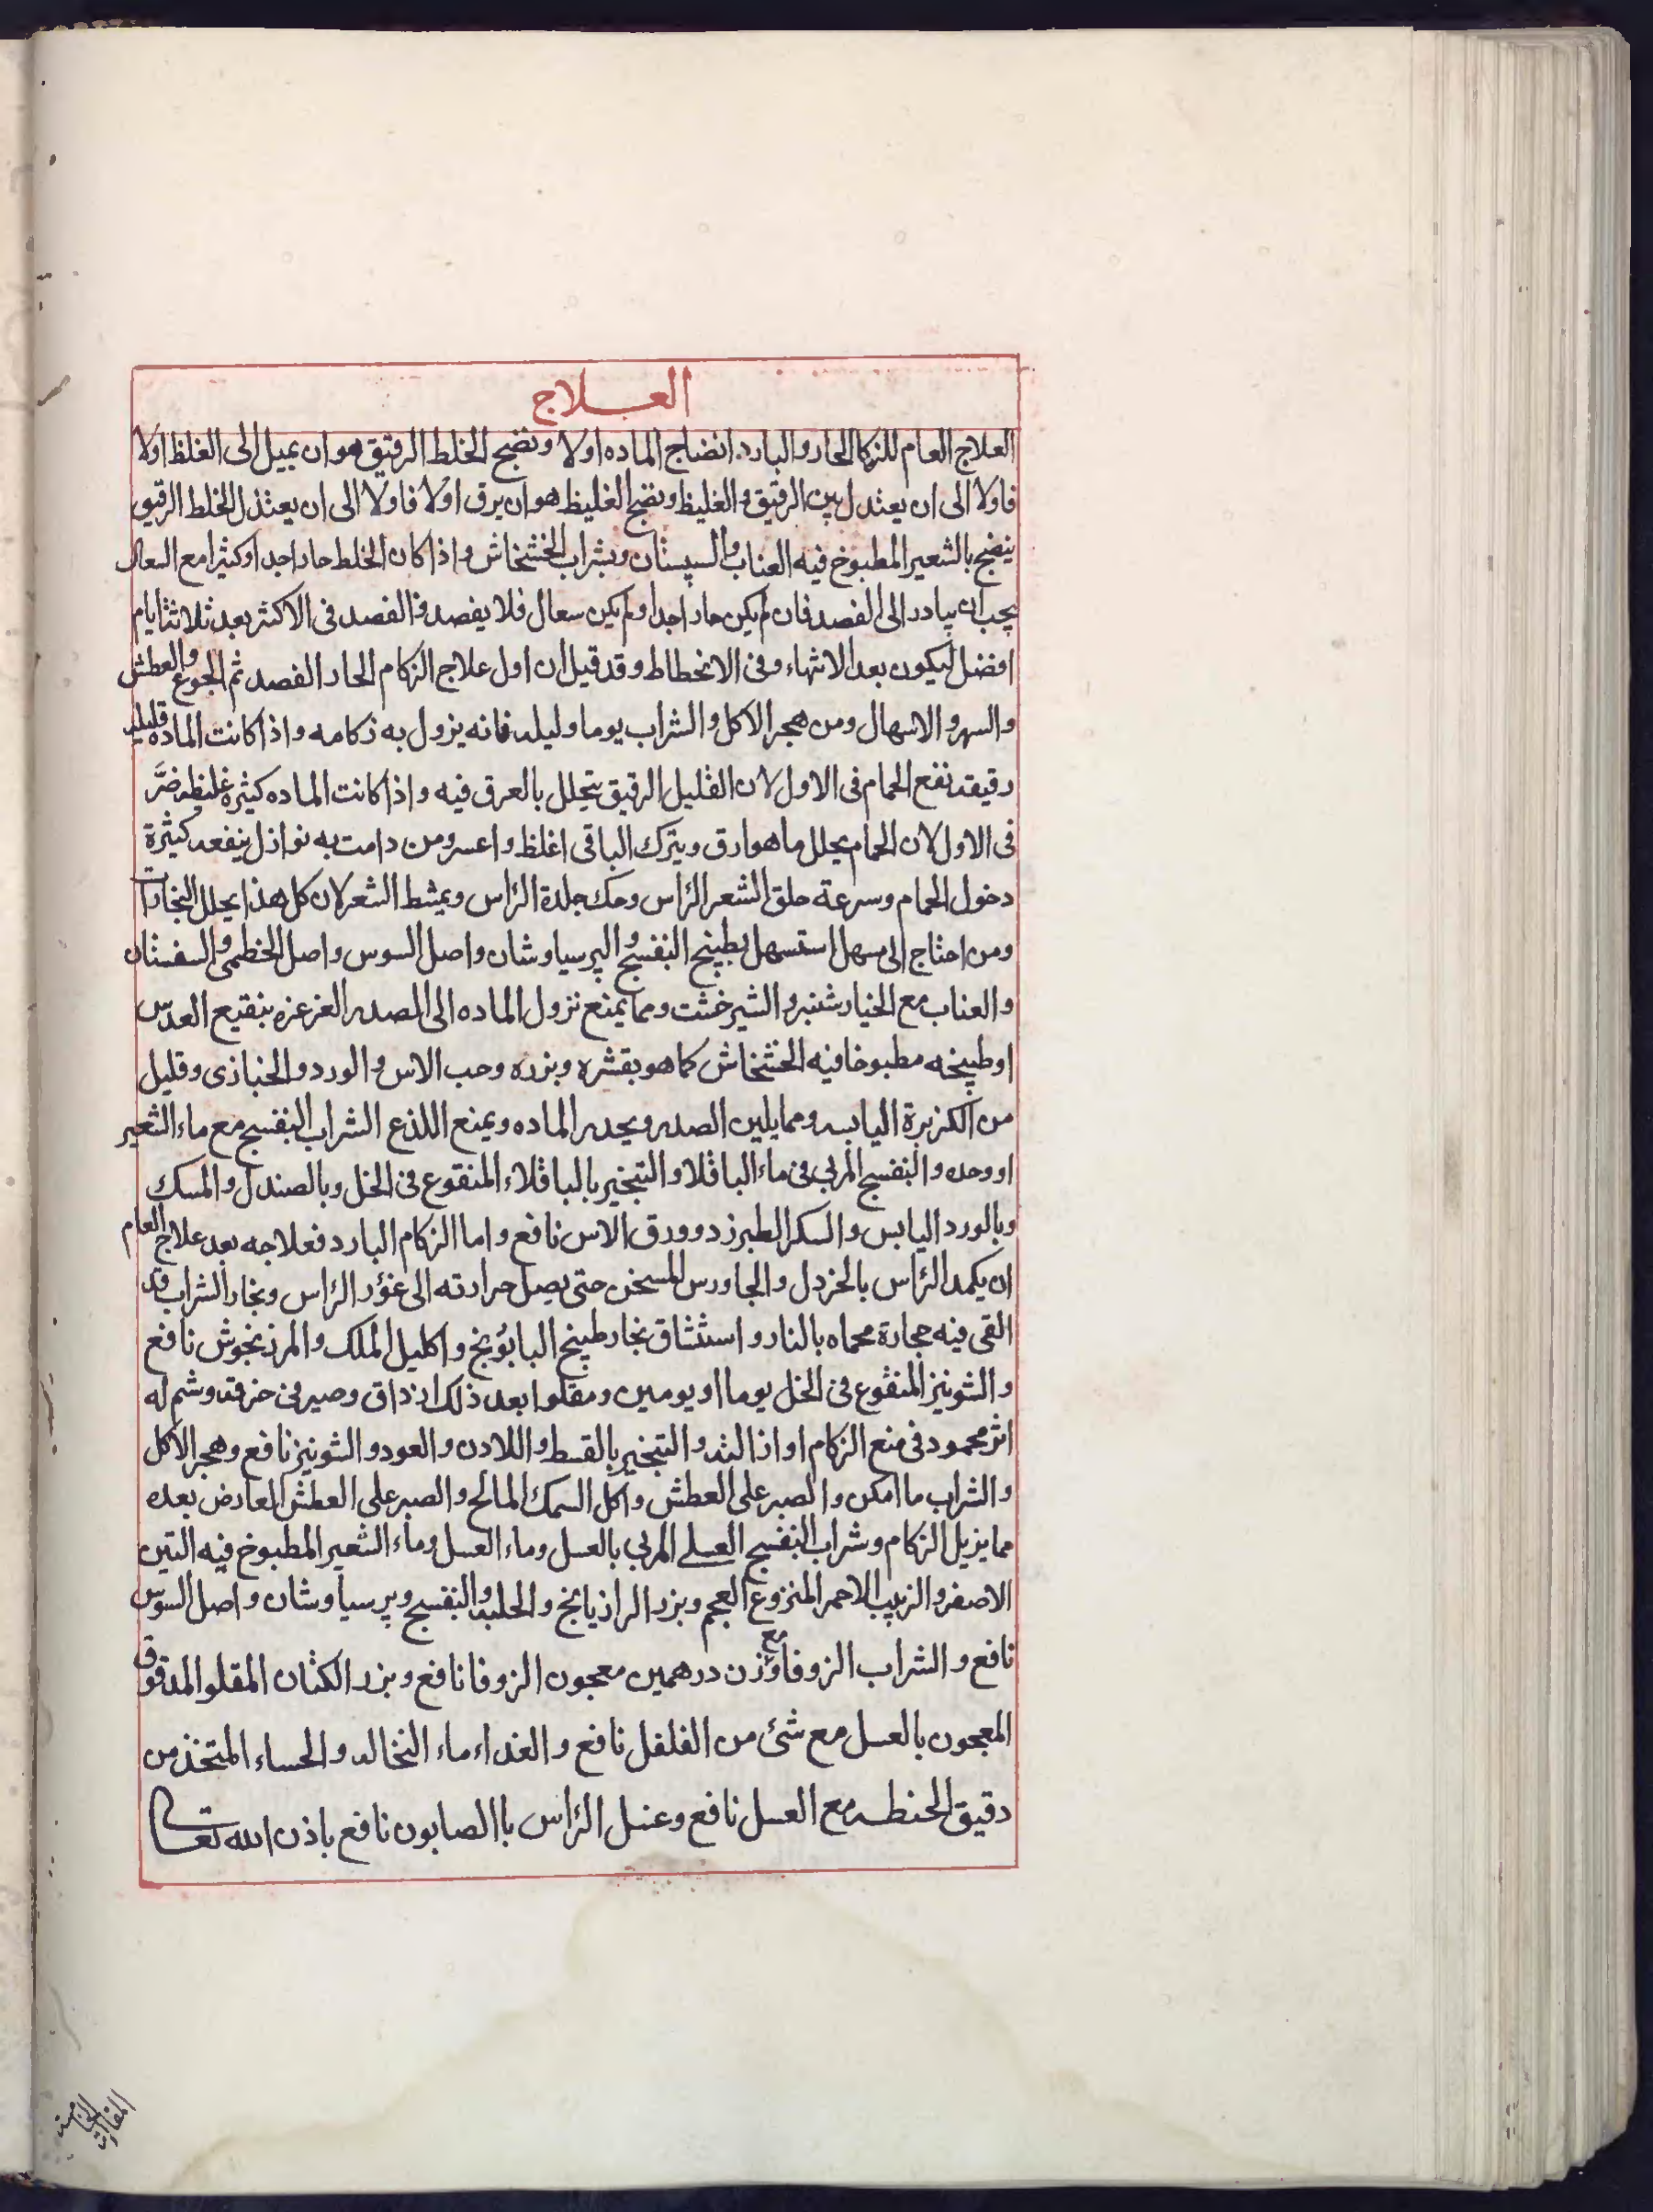 العلاج
العلاج العام للزكام الحار والبارد انضاج الماده اولا ونضج الخلط الرقيق هو ان يميل الى الغلظ اولا
فاولا الى ان يعتدل بين الرقيق والغليظ ونضج الغليظ هو ان يرق اولا فاولا الى ان يعتدل الخلط الرقيق
ينضج بالشعير المطبوخ فيه العناب والسپستان وبشراب الخشخاش واذا كان الخلط حارا جدا وكثيرا مع السعال
يجب ان يبادر الى الفصد فان لم يكن حارا جدا ولم يكن سعال فلا يفصد فالفصد فى الاكثر بعد ثلاثة ايام
افضل ليكون بعد الانتهاء وفى الانحطاط وقد قيل ان اول علاج الزكام الحار الفصد ثم الجوع والعطش
والسهر والاسهال ومن هجر الاكل والشراب يوما وليله فانه يزول به زكامه واذا كانت الماده قليله
رقيقه نفع الحمام فى الاول لان القليل الرقيق يتحلل بالعرق فيه واذا كانت الماده كثيره غليظه ضَّر
فى الاول لان الحمام يحلل ما هو ارق ويترك الباقى اغلظ واعسر ومن دامت به نوازل ينفعه كثيرة
دخول الحمام وسرعة حلق الشعر الرٔاس وحك جلدة الرٔاس ويمشط الشعر لان كل هذا يحلل البخارات
ومن احتاج الى مسهل استسهل بطبيخ البنفسج والپرسياوشان واصل السوس واصل الخطمى والسفستان
والعناب مع الخيار شنبر والشيرخشت ومما يمنع نزول الماده الى الصدر الغرغره بنقيع العدس
او طبيخه مطبوخا فيه الخشخاش كما هو بقشره وبزره وحب الاس والورد والخبازى وقليل
من الكزبرة اليابسه ومما يلين الصدر ويحدر الماده ويمنع اللذع الشراب البنفسج مع ماء الشعير
او وحده والبنفسج المربى فى ماء الباقلا والتبخير بالباقلاء المنقوع فى الخل وبالصندل والمسك
وبالورد اليابس والسكر الطبرزد وورق الاس نافع واما الزكام البارد فعلاجه بعد علاج العام
ان يكمد الرٔاس بالخردل والجاورس المسخن حتى يصل حرارته الى غؤر الرٔاس وبخار الشراب قد
القى فيه حجارة محماه بالنار واستنشاق بخار طبيخ البابؤنج واكليل الملك والمرزنجوش نافع
والشونيز المنقوع فى الخل يوما او يومين ومقلوا بعد ذلك اذ داق وصير فى خرقه وشم له
اثر محمود فى منع الزكام او ازالته والتبخير بالقسط واللادن والعود والشونيز نافع وهجر الاكل
والشراب ما امكن والصبر على العطش واكل السمك المالح والصبر على العطش العارض بعده
مما يزيل الزكام وشراب البنفسج العسلے المربى بالعسل وماء العسل وماء الشعير المطبوخ فيه التين
الاصفر والزبيب الاحمر المنزوع العجم وبزر الرازيانج والحلبه والبنفسج وپرسياوشان واصل السوس
نافع والشراب الزوفا مع وزن درهمين معجون الزوفا نافع وبزر الكتان المقلو المدقوق
المعجون بالعسل مع شئ من الفلفل نافع والغداء ماء النخاله والحساء المتخذ من
دقيق الحنطه مع العسل نافع وغسل الرٔاس باالصابون نافع باذن الله تعالى
المقالة
الخامسة